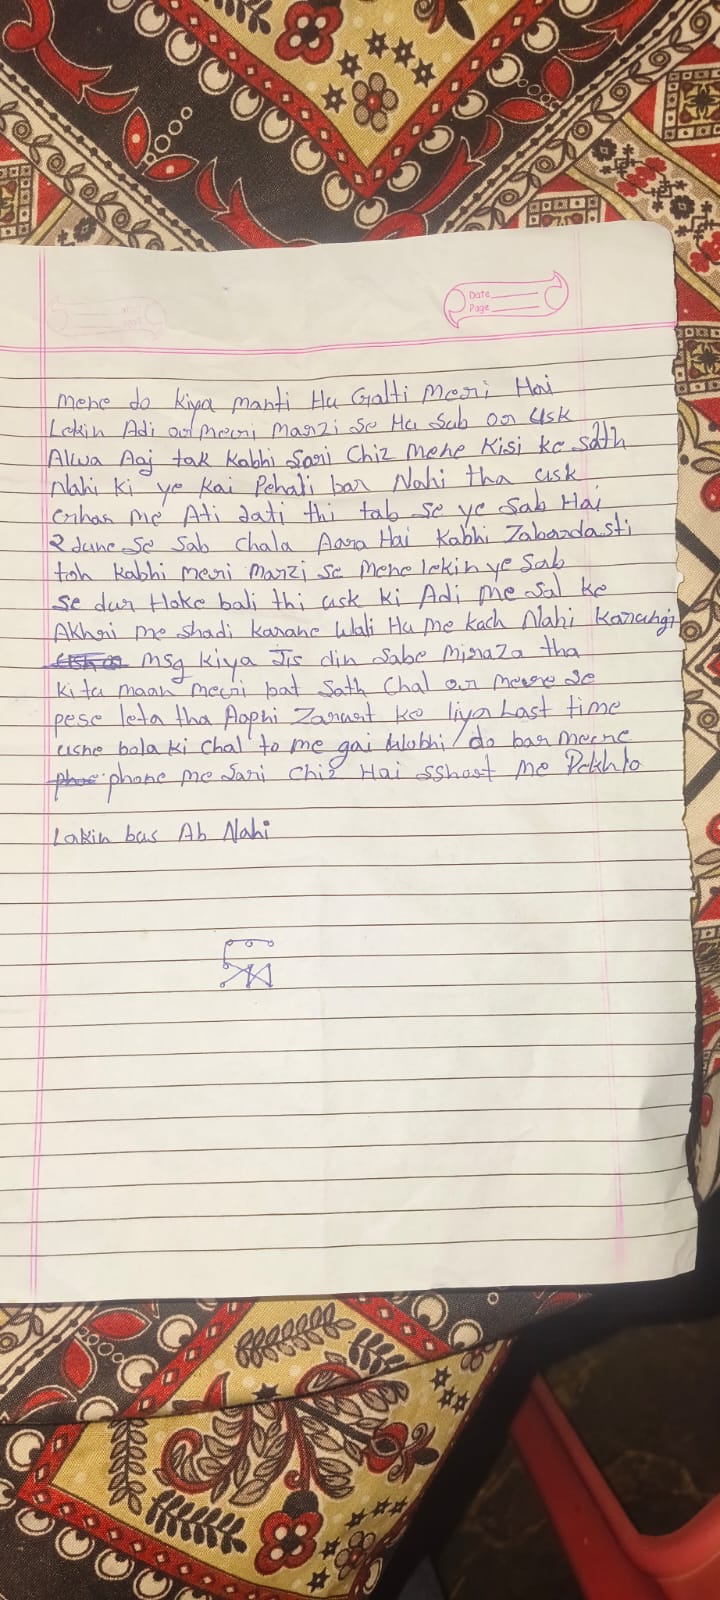 Date
Page
Mene do kiya manti Hu Galti Meri Hai
Lekin Adi or Meri Marzi se Hu Sub or Usk
Alwa Aaj tak Kabhi Sari Chiz Mene Kisi ke sath
Nahi ki ye Kai Pehali bar Nahi tha usk
Ati Jati thi tab se ye Sab Hai
2 June se Sab Chala Aara Hai Kabhi Zabardasti
toh Kabhi meri Marzi se Mene lekin ye Sab
se dur Hoke bali thi usk ki Adi me Sal ke
Akhri me Shadi Karane Wali Hu me Kuch Nahi Karungi
msg kiya Jis din Sabe
ki tu maan meri bat Sath Chal or Mere se
pese leta tha Aaphi Zarurt ke liya Last time
usne bola ki Chal to me gai Wobhi do bar Merne
phone me Sari Chiz Hai sshoot Me Dekhlo
Lakin bas Ab Nahi